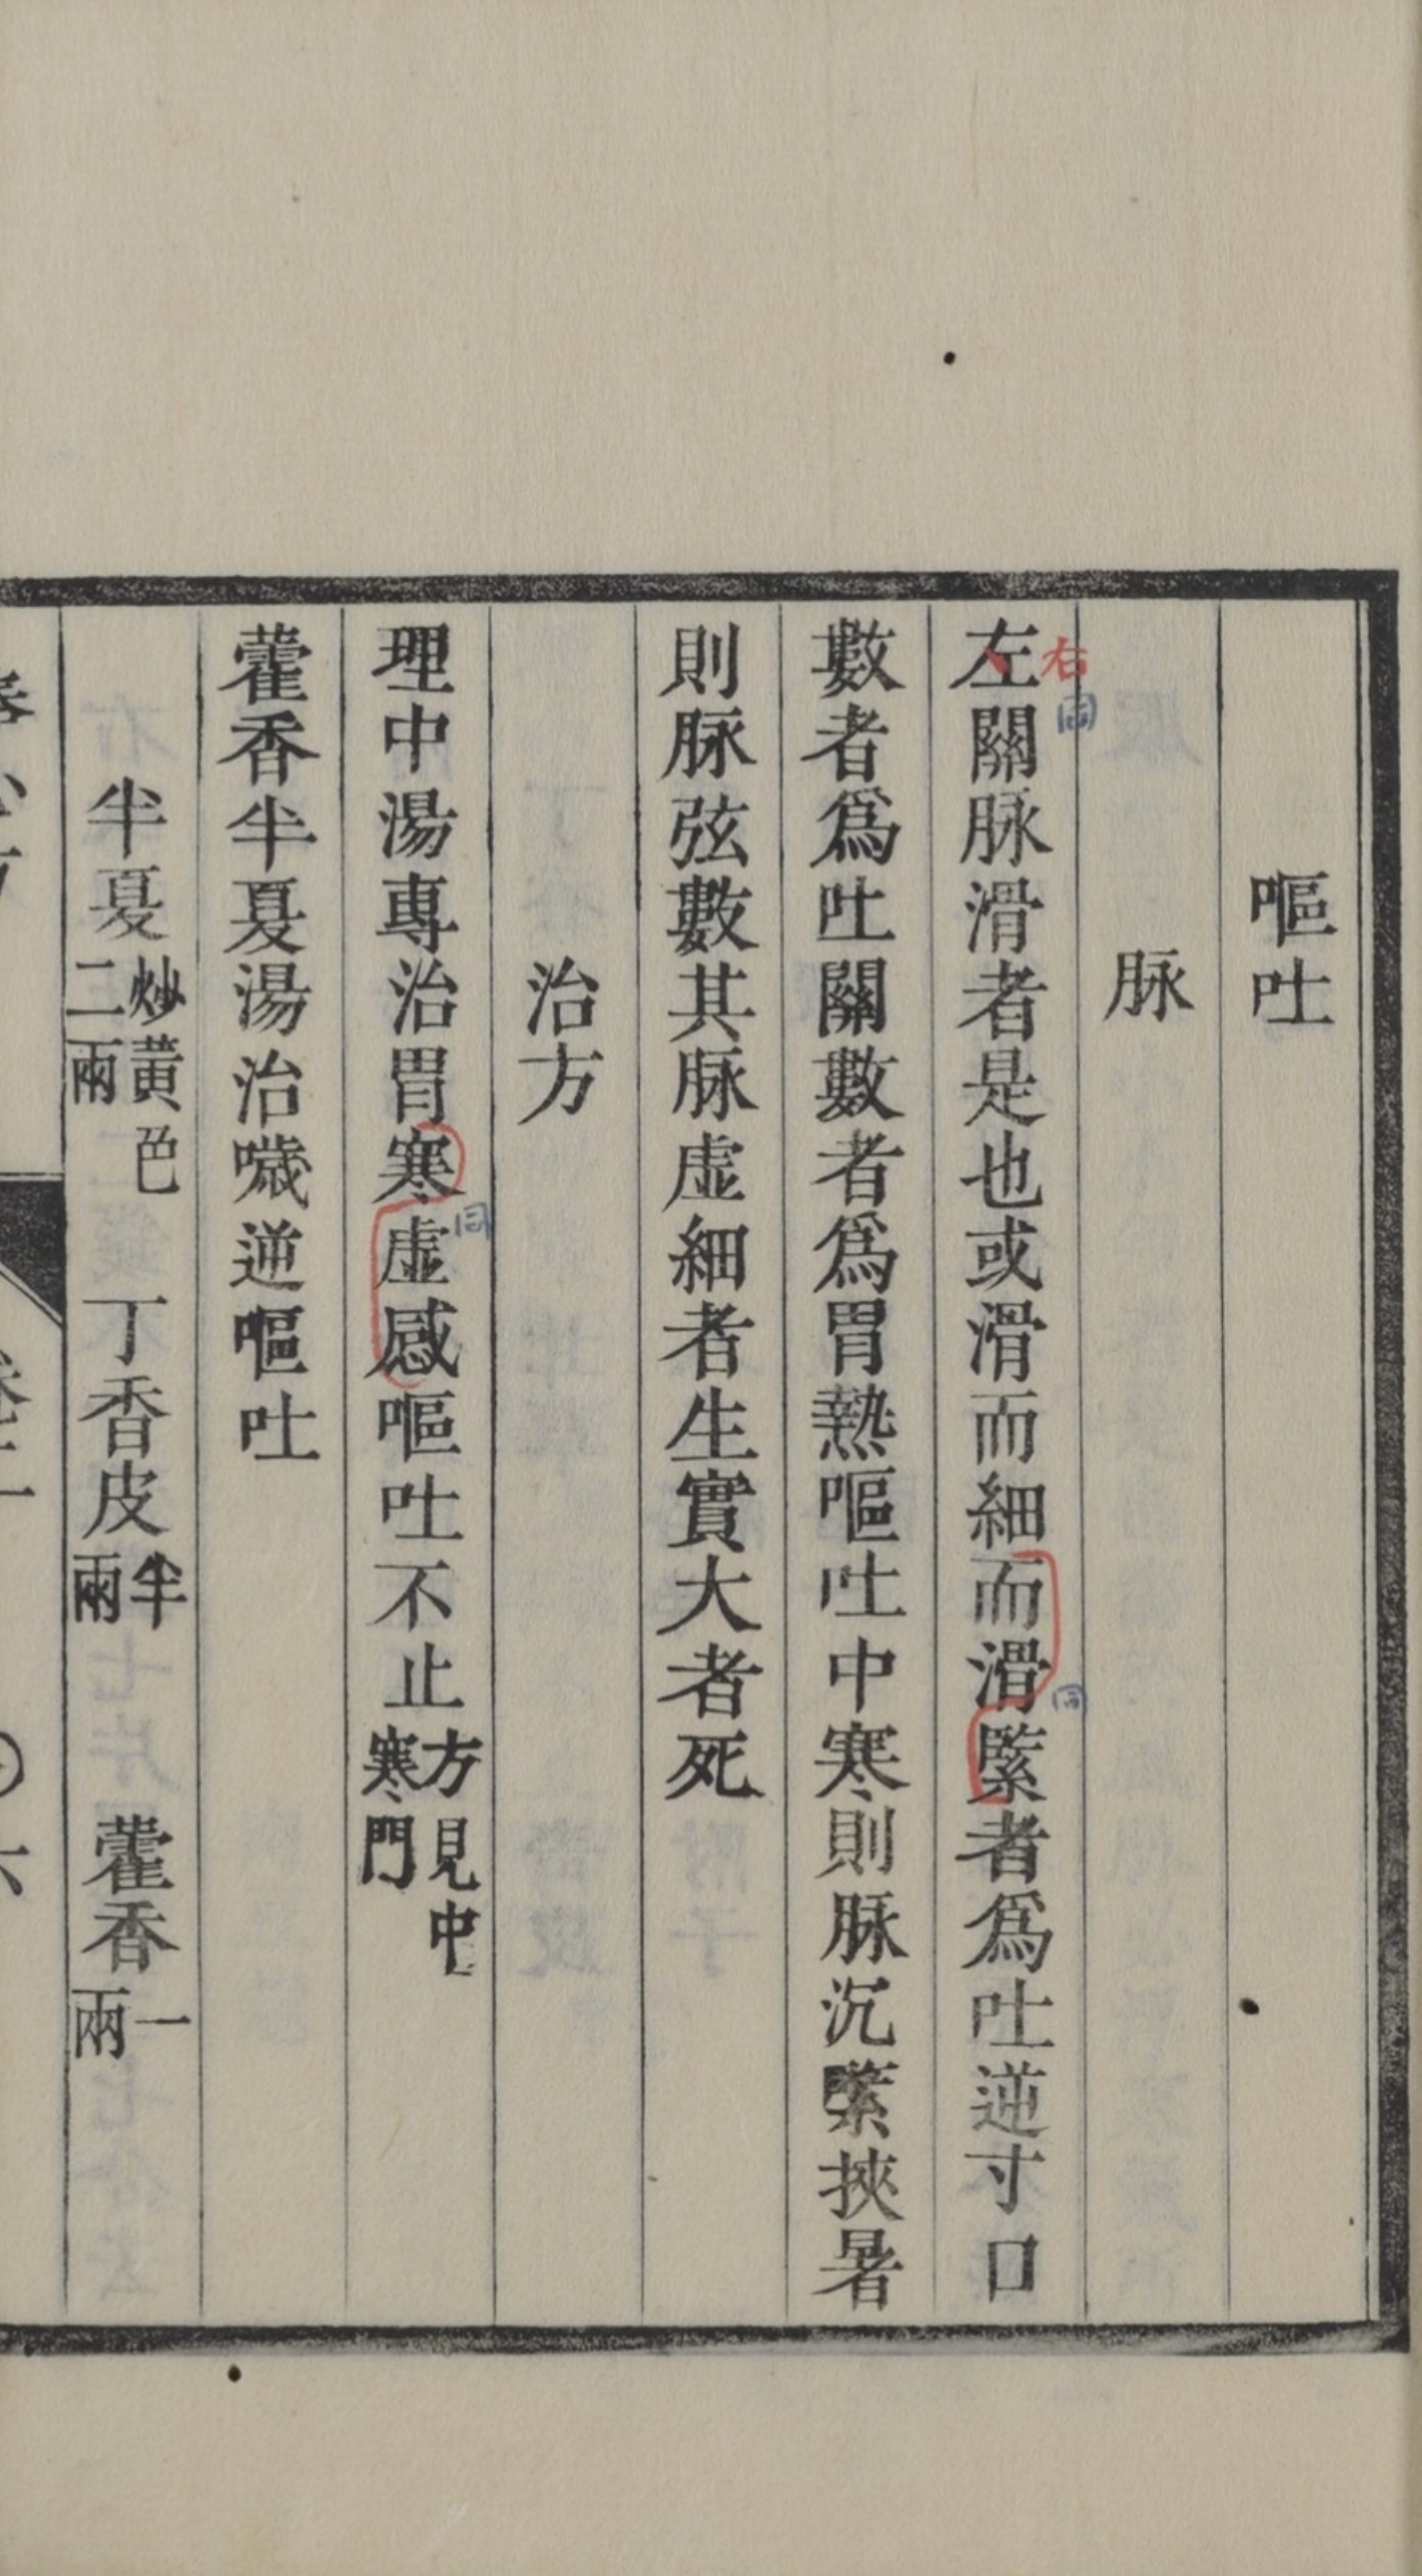 嘔吐
脉
左關脉滑者是也或滑而細而滑緊者爲吐逆寸口
右
同
同
數者爲吐關數者爲胃熱嘔吐中寒則脉沉緊挾暑
則脉弦數其脉虚細者生實大者死
治方
理中湯專治胃寒虚感嘔吐不止方見中寒門
同
藿香半夏湯治噦逆嘔吐
半夏炒黄色二兩 丁香皮半兩 藿香一兩